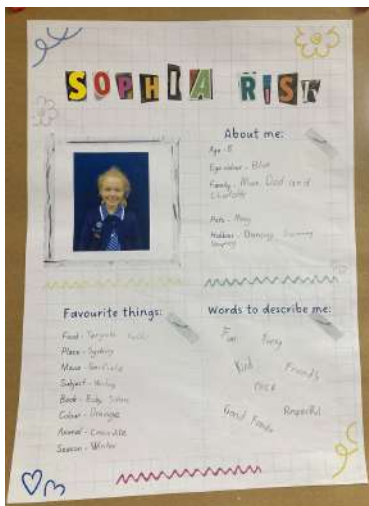 SOPHIA RISK
About me:
Age - 8
Eye colour - Blue
Family - Mum, Dad and
Charlotte
Pets - Missy
Hobbies - Dancing Swimming
Singing
Favourite things:
Food - Teriyaki
Place - Sydney
Movie - Garfield
Subject - Writing
Book - Ruby
Colour - Orange
Animal - Crocodile
Season - Winter
Words to describe me:
Fun
Funny
Kind
Friendly
nice
Good
Respectful